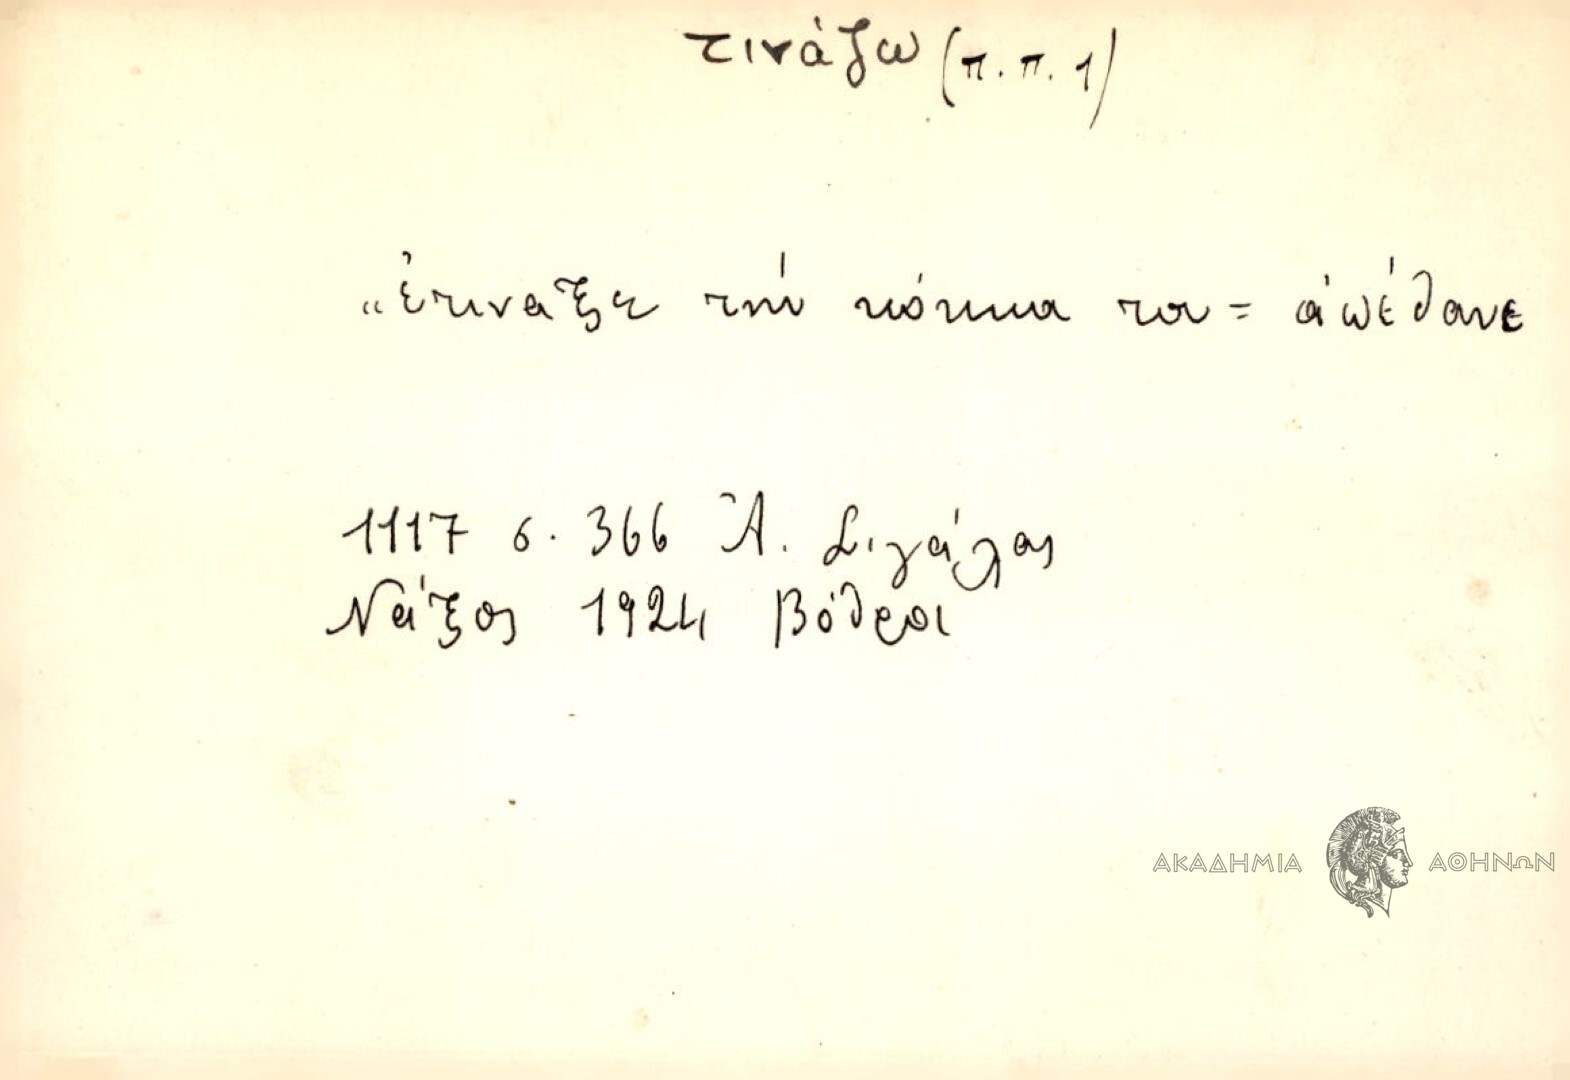 τινάζω (π.π. 1)
"ἐτιναξε τὴν κόκκα του = ἀπέθανε
1117 σ. 366 Ἀ. Σιγάλας
Νάξος 1924 Βόθροι
ΑΚΑΔΗΜΙΑ ΑΘΗΝΩΝ